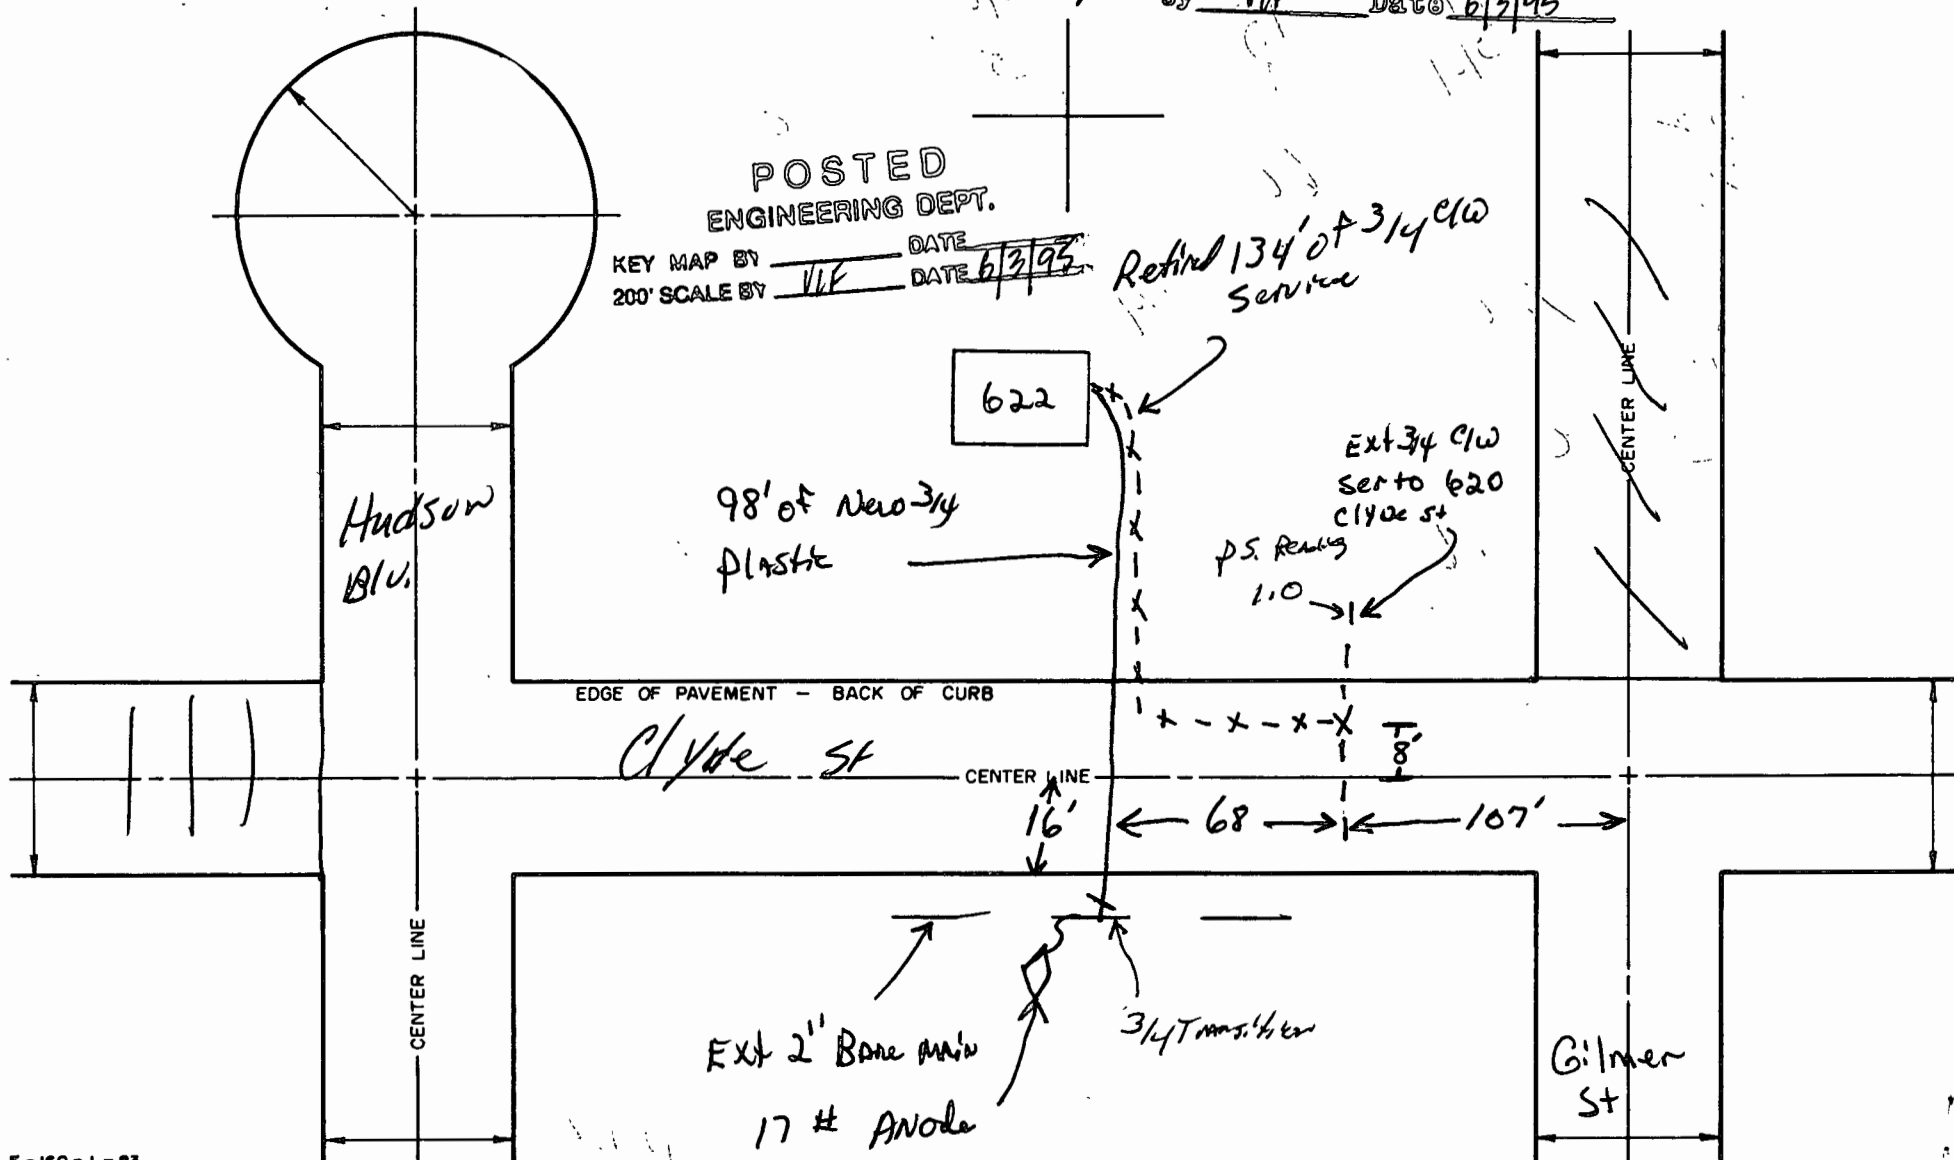 By VLF Date 6/3/95
POSTED
ENGINEERING DEPT.
KEY MAP BY DATE
200' SCALE BY VLF DATE 6/3/95
Retired 134' of 3/4 C/W
Service
622
Ext 3/4 C/W
Ser to 620
Clyde St
98' of New 3/4
Plastic
P.S. Reading
1.0
Hudson
Blv.
CENTER LINE
EDGE OF PAVEMENT - BACK OF CURB
Clyde St
CENTER LINE
8'
16'
68
107'
CENTER LINE
Ext 2" Bare main
3/4 Transition
17 # Anode
Gilmer
St